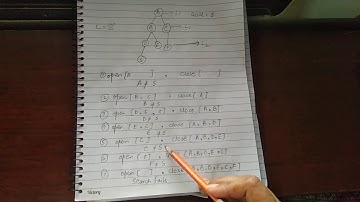 A
B C L1
L=2
D E F L2
G
① open [A ] • close [ ]
A ≠ S
② open [B, C] • close [A]
B ≠ S
③ open [D, E, C] • close [A, B]
D ≠ S
④ open [E, C] • close [A, B, D]
E ≠ S
⑤ open [C] • close [A, B, D, E]
C ≠ S
⑥ open [F] • close [A, B, D, E, C]
F ≠ S
⑦ open [ ] • close [A, B, D, E, C, F]
Search Fails